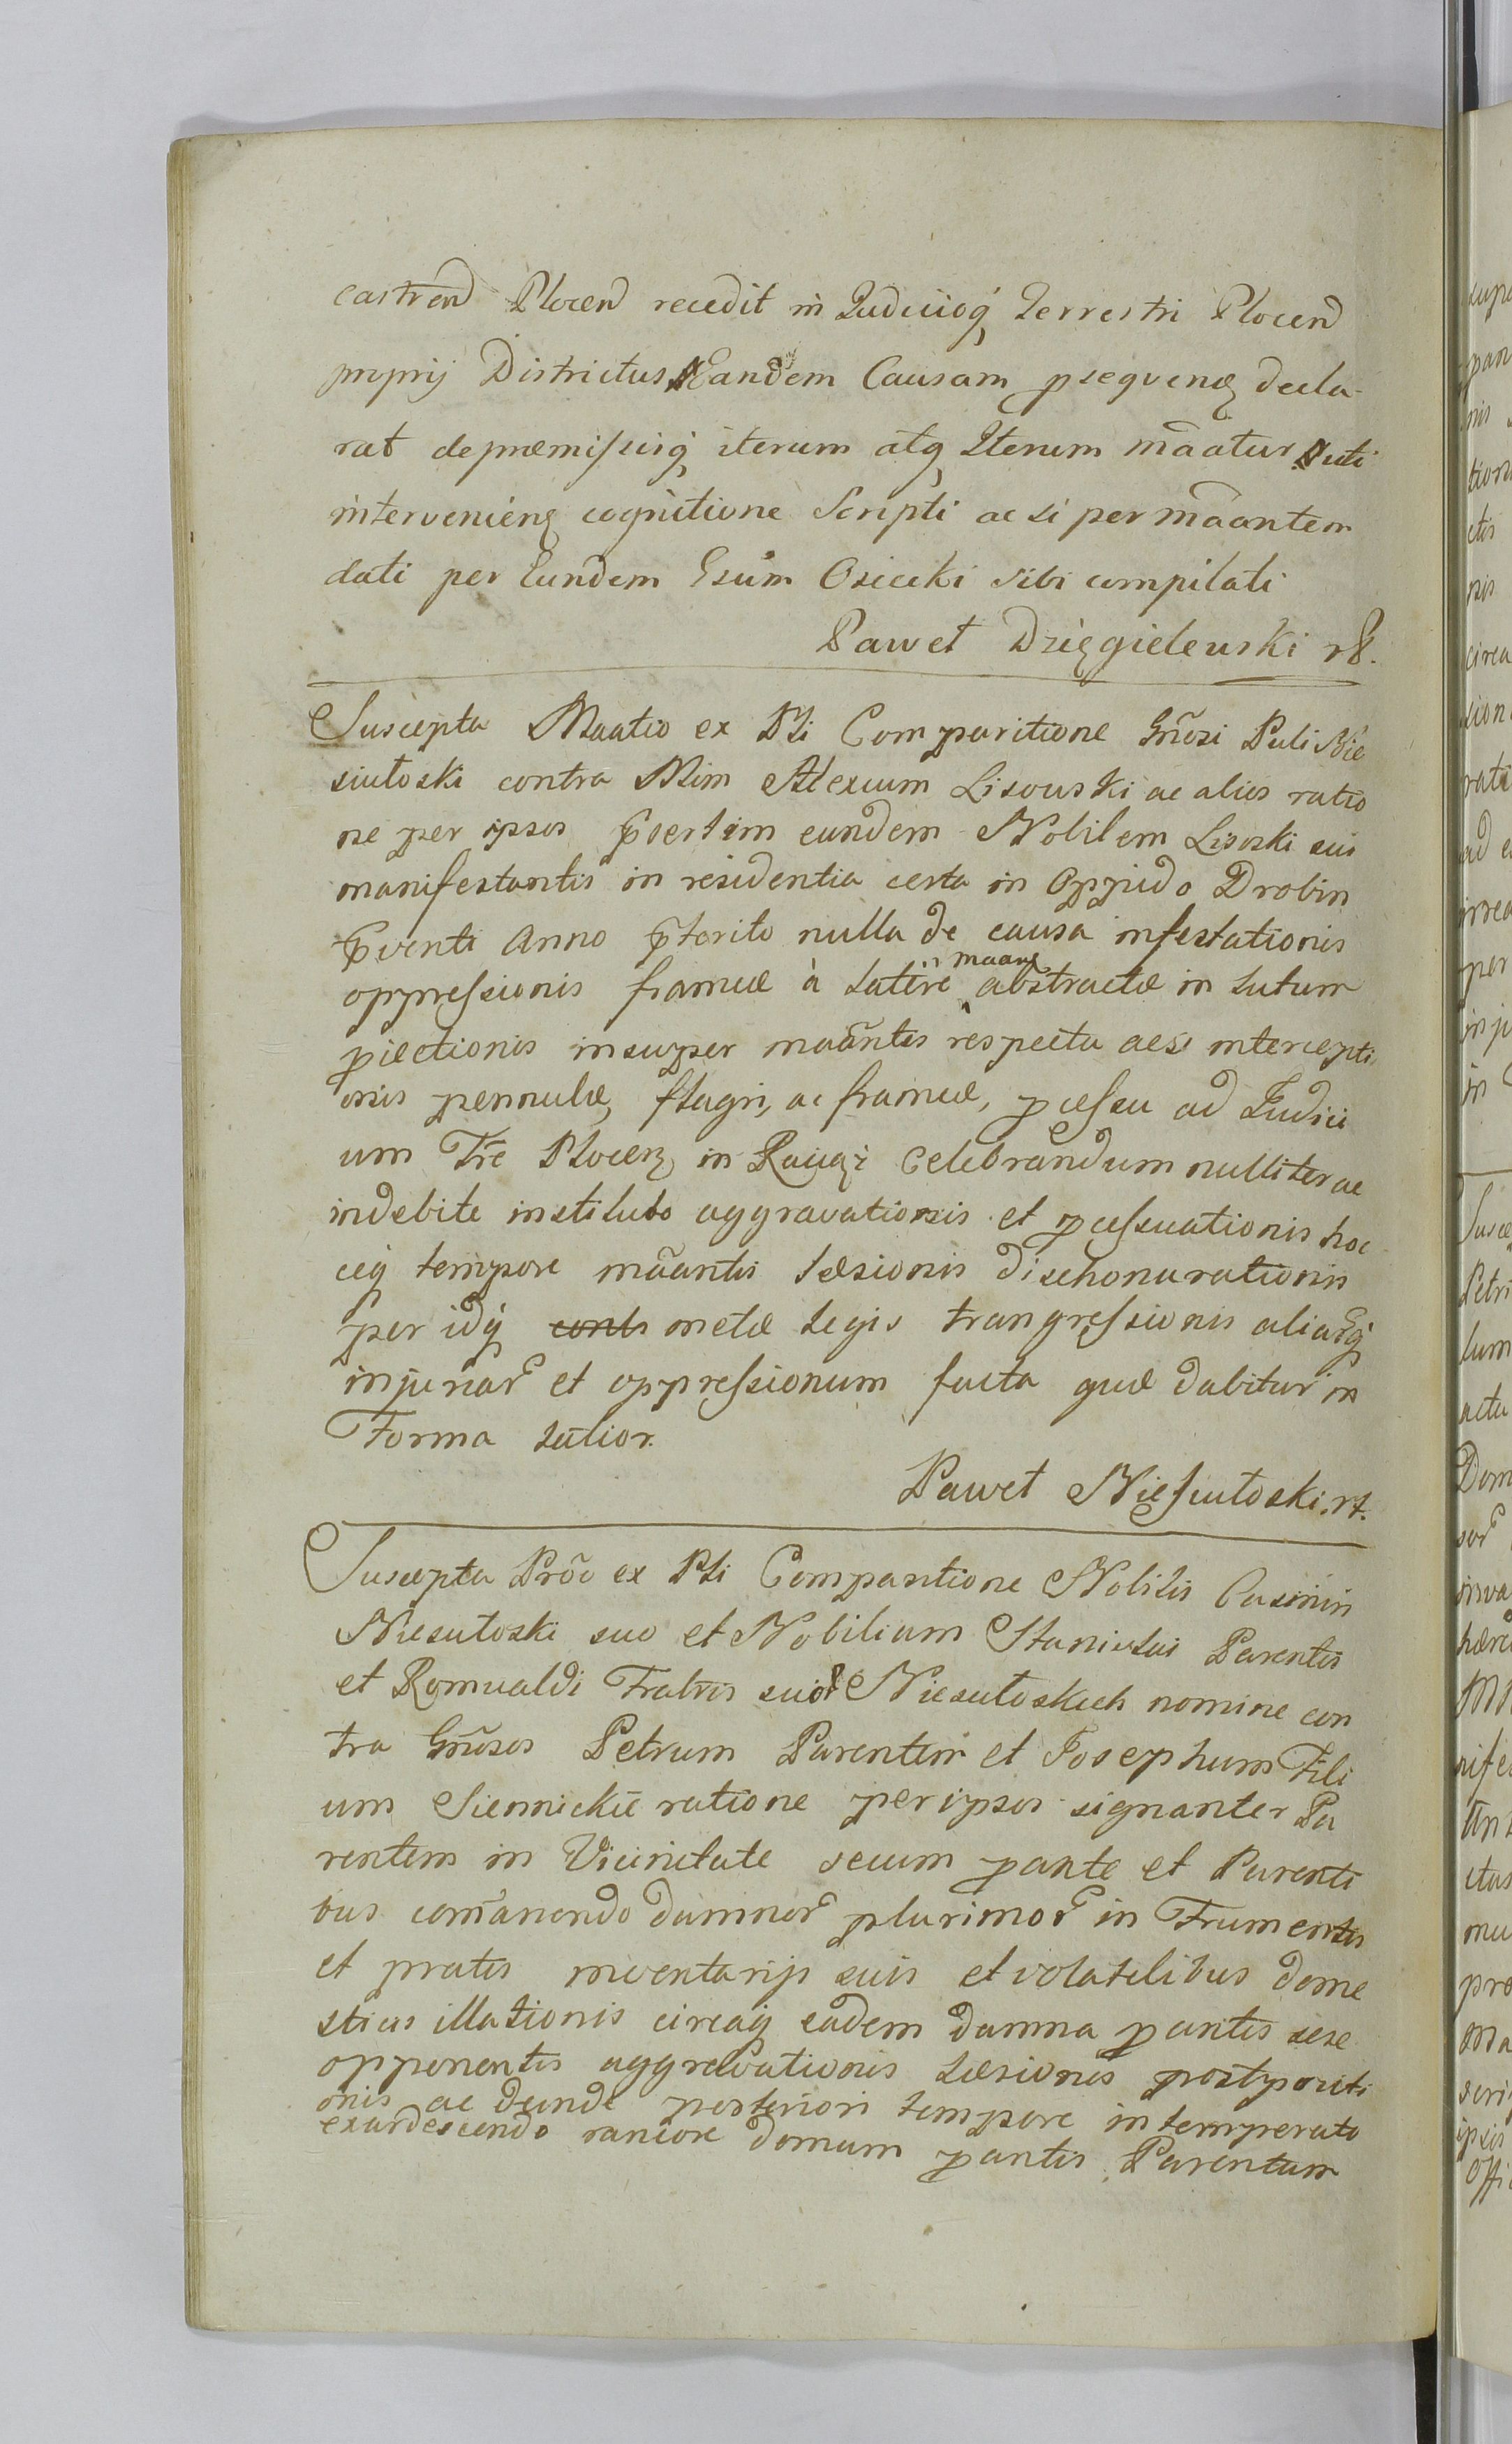 castren̄d Plocen̄d recedit in Judicioq́ Terrestri Plocen̄d
proprij Districtus Eandem Causam p̱seqvenꝫ decla-
rat de præmiſsisq́ iterum atq́ Iterum mãatur uti
intervenienꝫ cognitione Scripti ac si per mãantem
dati per Eundem Gsum Osiecki sibi compilati
Paweł Dzięgielewski
Suscepta Maatio ex Pli Comparitione Gñosi Puli Nie
siułoski contra Nlm Alexium Lisowski ac alios ratio
ne per ipsos p̱sertim eundem Nobilem Lisoski sui
manifestantis in residentia certa in Oppido Drobin
p̱venti Anno p̱terito nulla de causa infestationis
oppreſsionis frameæ à latere maanꝫ abstractæ in lutum
p̱iectionis insuper maãntis respectu acsi intercepti
onis pennulæ, flagri, ac frameæ, p̱ceſsu ad Judici
um Tr̃e Plocenꝫ in Raciąż Celebrandum nulliter ac
indebite instituto aggravationis et p̱ceſsuationis hoc
ceq́ tempore mãantis læsionis dischonorationis
per idq́ metæ legis trangreſsionis aliarq́
injuriar̃ et oppreſsionum facta quæ dabitur in
Forma latior.
Paweł Nieſiułoski
Suscepta Prõo ex Pli Comparitione Nobilis Casimiri
Niesułoski suo et Nobilium Stanislai Parentis
et Romualdi Fratris suor̃ Niesułoskich nomine con
tra Gñosos Petrum Parentem et Josephum Fili
um Siennickie ratione per ipsos signanter Pa
rentem in Vicinitate secum p̱ante et Parenti
bus com̃anendo damnor̃ plurimor̃ in Frumentis
et pratis inventarijs suis et volatilibus dome
sticis illationis circaq́ eadem damna p̱antis sese
opponentis aggravationis læsionis postpositi
onis ac deinde posteriori tempore intemperato
exardescendo rancore domum p̱antis Parentum